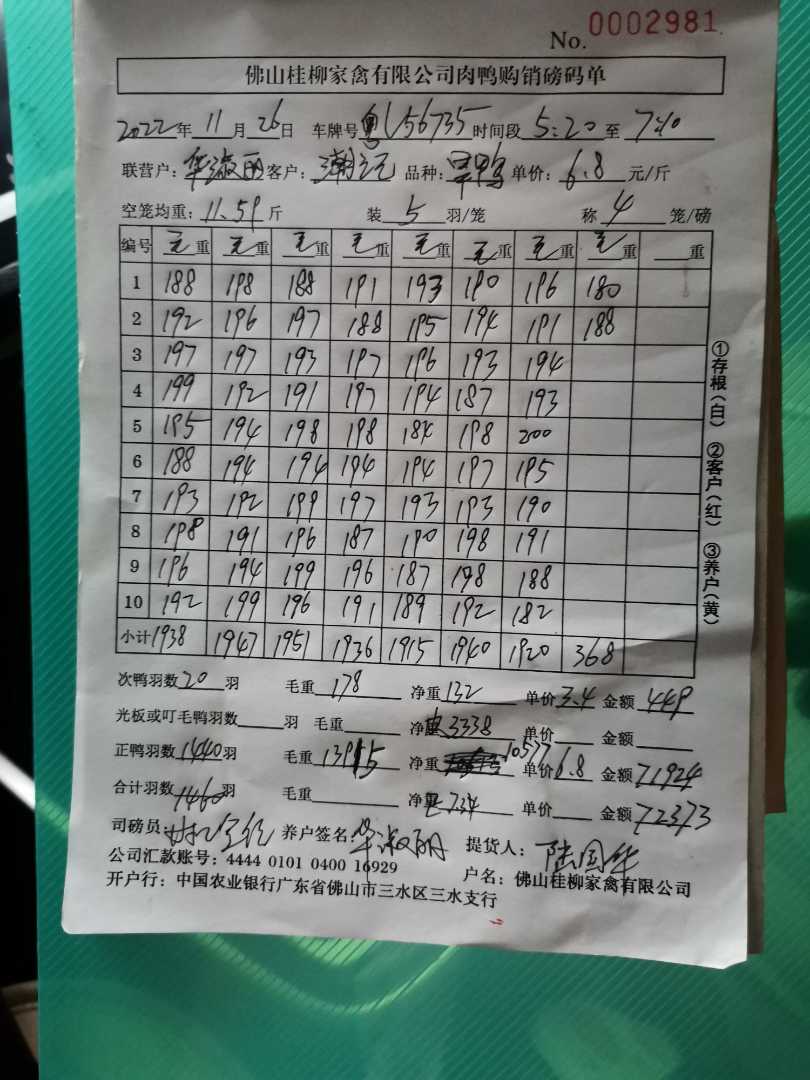 No. 0002981
佛山桂柳家禽有限公司肉鸭购销磅码单
2022年 11月 26日 车牌号 粤 L56735 时间段 5:20 至 7:10
联营户: 华淑丽 客户: 潮记 品种: 旱鸭 单价: 6.8 元/斤
空笼均重: 11.59 斤 装 5 羽/笼 称 4 笼/磅
编号 毛重 毛重 毛重 毛重 毛重 毛重 毛重 毛重 重
1 188 198 188 191 193 190 196 180
2 192 196 197 188 195 194 191 188
3 197 197 193 197 196 193 194
4 199 192 191 197 194 187 193
5 195 194 198 198 184 198 200
6 188 194 194 194 194 197 195
7 193 192 199 197 193 193 190
8 198 191 196 187 190 198 191
9 196 194 199 196 187 198 188
10 192 199 196 191 189 192 182
小计 1938 1947 1951 1936 1915 1940 1920 368
①存根(白) ②客户(红) ③养户(黄)
次鸭羽数 20 羽 毛重 178 净重 132 单价 3.4 金额 449
光板或叮毛鸭羽数 羽 毛重 净 皮 3338 单价 金额
正鸭羽数 1440 羽 毛重 13915 净重 10577 单价 6.8 金额 71924
合计羽数 1460 羽 毛重 净 7.34 单价 金额 72373
司磅员: 养户签名: 华淑丽 提货人: 陆国华
公司汇款账号: 4444 0101 0400 16929 户名: 佛山桂柳家禽有限公司
开户行: 中国农业银行广东省佛山市三水区三水支行